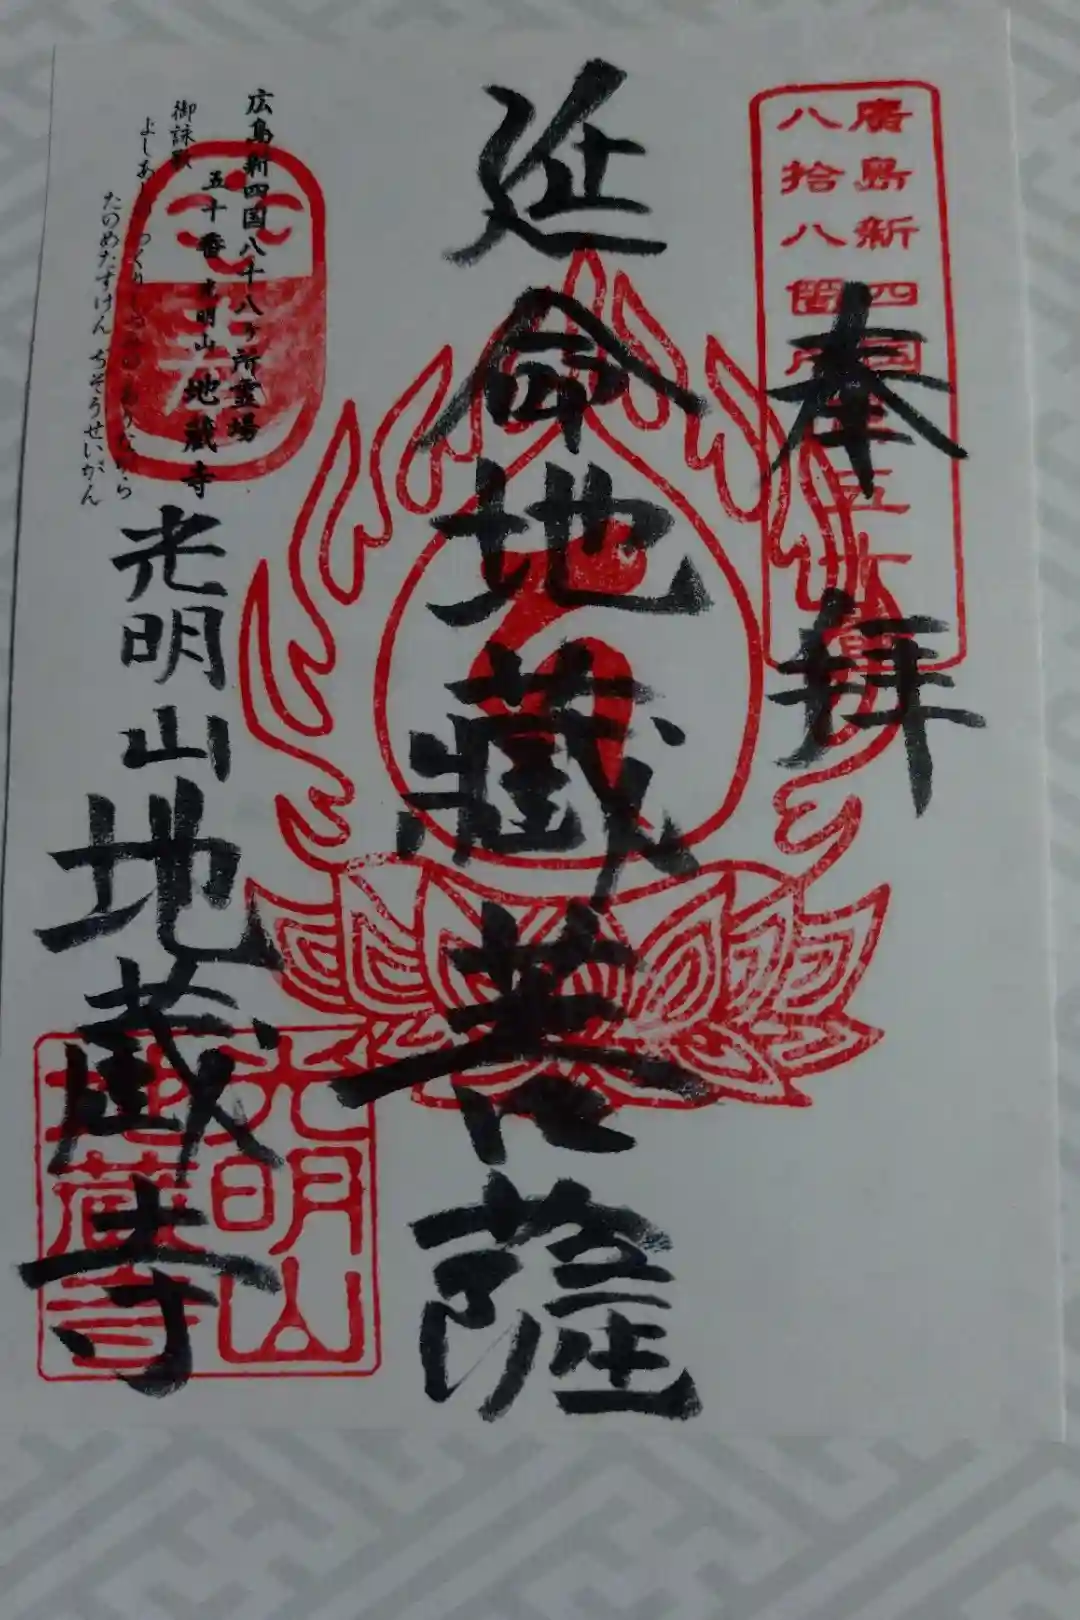 奉拝
廣島新四国
八拾八箇所
五十番
延命地藏菩薩
広島新四国八十八ヶ所霊場
五十番 光明山 地蔵寺
御詠歌
たのめたすけん ぢぞうせいがん
光明山
地蔵寺
光明山
地蔵寺